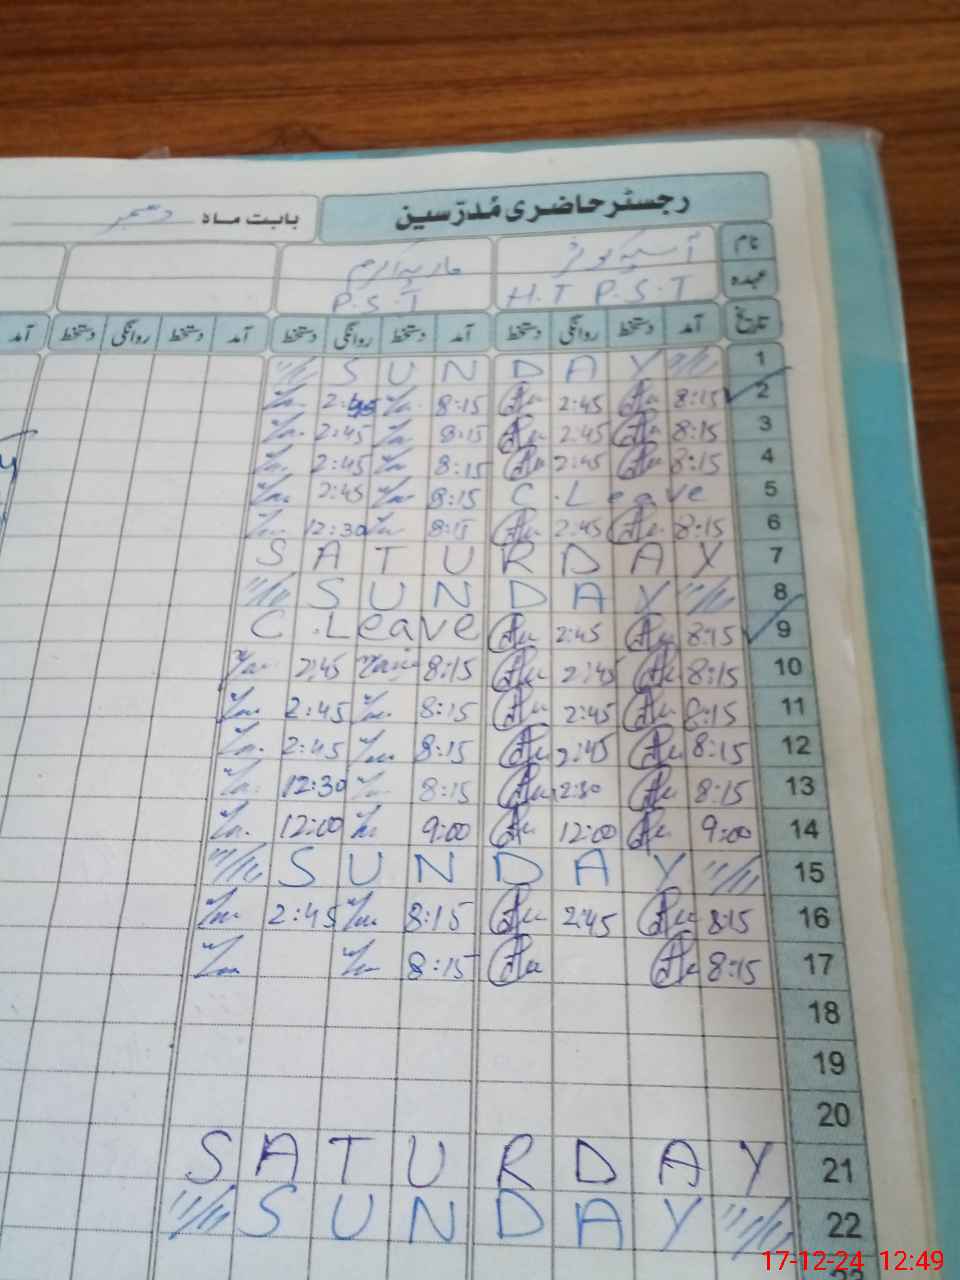 رجسٹر حاضری مُدرّسین
بابت ماہ دسمبر
نام آسیہ کوثر ماریہ اکرم
عہدہ H.T P.S.T P.S.T
تاریخ آمد دستخط روانگی دستخط آمد دستخط روانگی دستخط آمد دستخط روانگی دستخط آمد
1 SUNDAY
2 8:15 2:45 8:15 2:45
3 8:15 2:45 8:15 2:45
4 8:15 2:45 8:15 2:45
5 C.Leave 8:15 2:45
6 8:15 2:45 8:15 12:30
7 SATURDAY
8 SUNDAY
9 8:15 2:45 C.Leave
10 8:15 2:45 8:15 2:45
11 8:15 2:45 8:15 2:45
12 8:15 2:45 8:15 2:45
13 8:15 12:30 8:15 12:30
14 9:00 12:00 9:00 12:00
15 SUNDAY
16 8:15 2:45 8:15 2:45
17 8:15 8:15
18
19
20
21 SATURDAY
22 SUNDAY
23
17-12-24 12:49